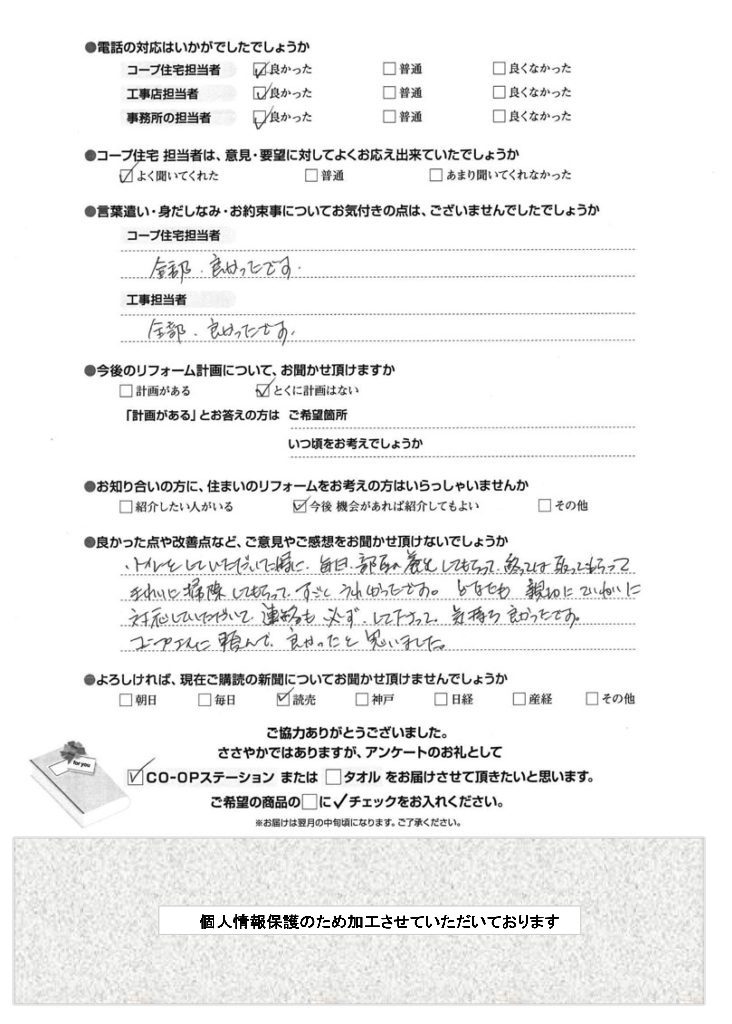 ●電話の対応はいかがでしたでしょうか
コープ住宅担当者 ☑良かった □普通 □良くなかった
工事店担当者 ☑良かった □普通 □良くなかった
事務所の担当者 ☑良かった □普通 □良くなかった
●コープ住宅 担当者は、意見・要望に対してよくお応え出来ていたでしょうか
☑よく聞いてくれた □普通 □あまり聞いてくれなかった
●言葉遣い・身だしなみ・お約束事についてお気付きの点は、ございませんでしたでしょうか
コープ住宅担当者
全部、良かったです。
工事担当者
全部、良かったです。
●今後のリフォーム計画について、お聞かせ頂けますか
□計画がある ☑とくに計画はない
「計画がある」とお答えの方は ご希望箇所
いつ頃をお考えでしょうか
●お知り合いの方に、住まいのリフォームをお考えの方はいらっしゃいませんか
□紹介したい人がいる ☑今後 機会があれば紹介してもよい □その他
●良かった点や改善点など、ご意見やご感想をお聞かせ頂けないでしょうか
していただいた時に、毎日、部屋の養生してもらって、終っては取ってもらって
きれいに掃除してもらって、すごくうれしかったです。どなたも親切にていねいに
対応していただいて、連絡も必ず、して下さって、気持ち良かったです。
コープさんに頼んで、良かったと思いました。
●よろしければ、現在ご購読の新聞についてお聞かせ頂けませんでしょうか
□朝日 □毎日 ☑読売 □神戸 □日経 □産経 □その他
ご協力ありがとうございました。
ささやかではありますが、アンケートのお礼として
for you
☑CO-OPステーション または □タオル をお届けさせて頂きたいと思います。
ご希望の商品の□に✓チェックをお入れください。
※お届けは翌月の中旬頃になります。ご了承ください。
個人情報保護のため加工させていただいております